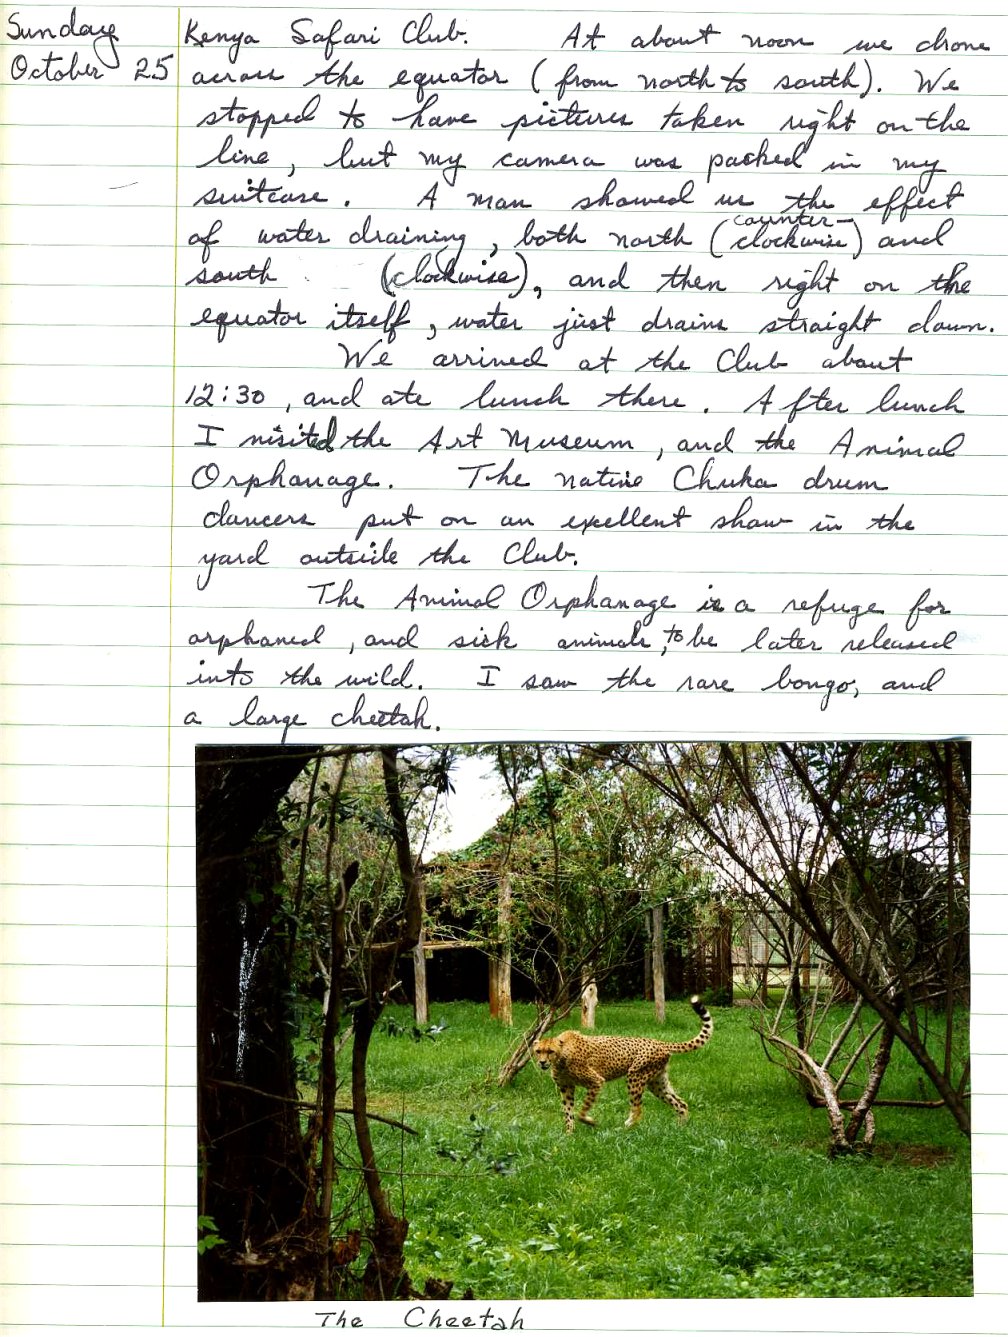 Sunday
October 25
Kenya Safari Club. At about noon we drove
across the equator (from north to south). We
stopped to have pictures taken right on the
line, but my camera was packed in my
suitcase. A man showed us the effect
of water draining, both north (counter-
clockwise) and
south (clockwise), and then right on the
equator itself, water just drains straight down.
We arrived at the Club about
12:30, and ate lunch there. After lunch
I visited the Art Museum, and the Animal
Orphanage. The native Chuka drum
dancers put on an excellent show in the
yard outside the Club.
The Animal Orphanage is a refuge for
orphaned, and sick animals, to be later released
into the wild. I saw the rare bongo, and
a large cheetah.
The Cheetah